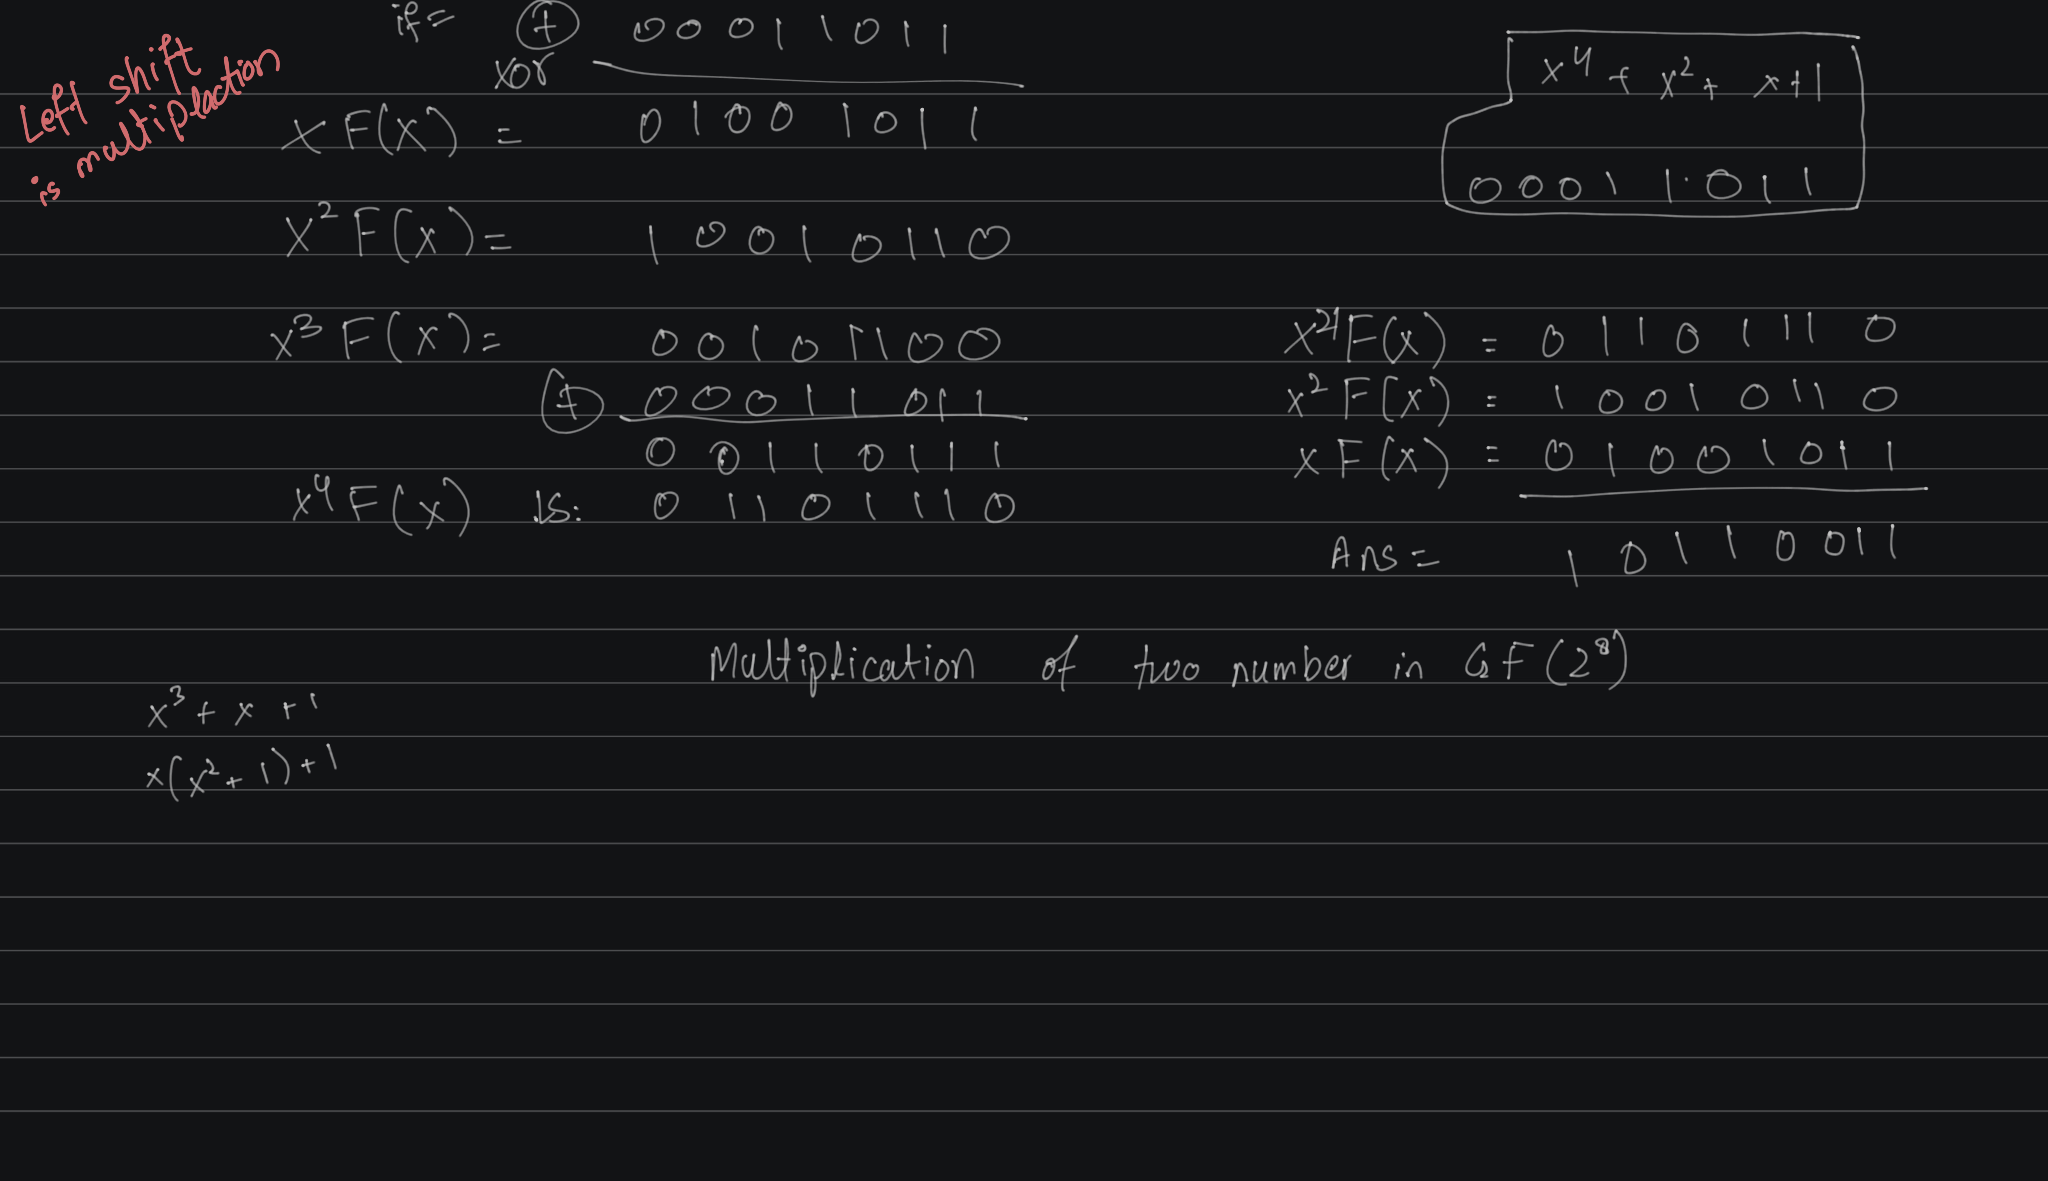 if = ⊕ 00011011
xor
Left shift
is multiplaction
X F(X) = 01001011
X² F(x) = 10010110
x³ F(x) = 00101100
⊕ 00011011
00110111
x⁴ F(x) is: 01101110
x⁴ + x² + x+1
00011011
x⁴ F(x) = 01101110
x² F(x) = 10010110
x F(x) = 01001011
Ans = 10110011
Multiplication of two number in GF(2⁸)
x³ + x + 1
x(x² + 1) + 1